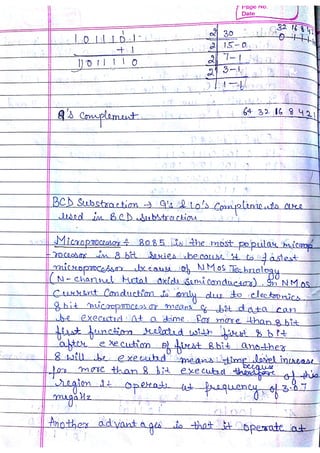 Page No.
Date
32 16 8 4 2
1 0 1 1 1 0 1
+ 1
1 0 1 1 1 1 0
2 30
2 15-0
2 7-1
2 3-1
1-1
0 1 1 1 1
9's Complement
64 32 16 8 4 2 1
BCD Substraction → 9's & 10's Complements are
used in BCD Substraction.
Microprocessor ÷ 8085 is the most popular microp
rocessor in 8 bit series because it is fastest
microprocessor because of NMOS Technology
(N-channel Metal oxide semiconductor). In NMOS
Current Conduction is only due to electronics
8 bit microprocessor means 8 bit data can
be executed at a time for more than 8 bit
first function related with first 8 bit
after execution of first 8bit another
8 will be executed means time level increase
for more than 8 bit executed because of this
region it operate at frequency of 3.07
megaHz
Another advantages is that it operate at